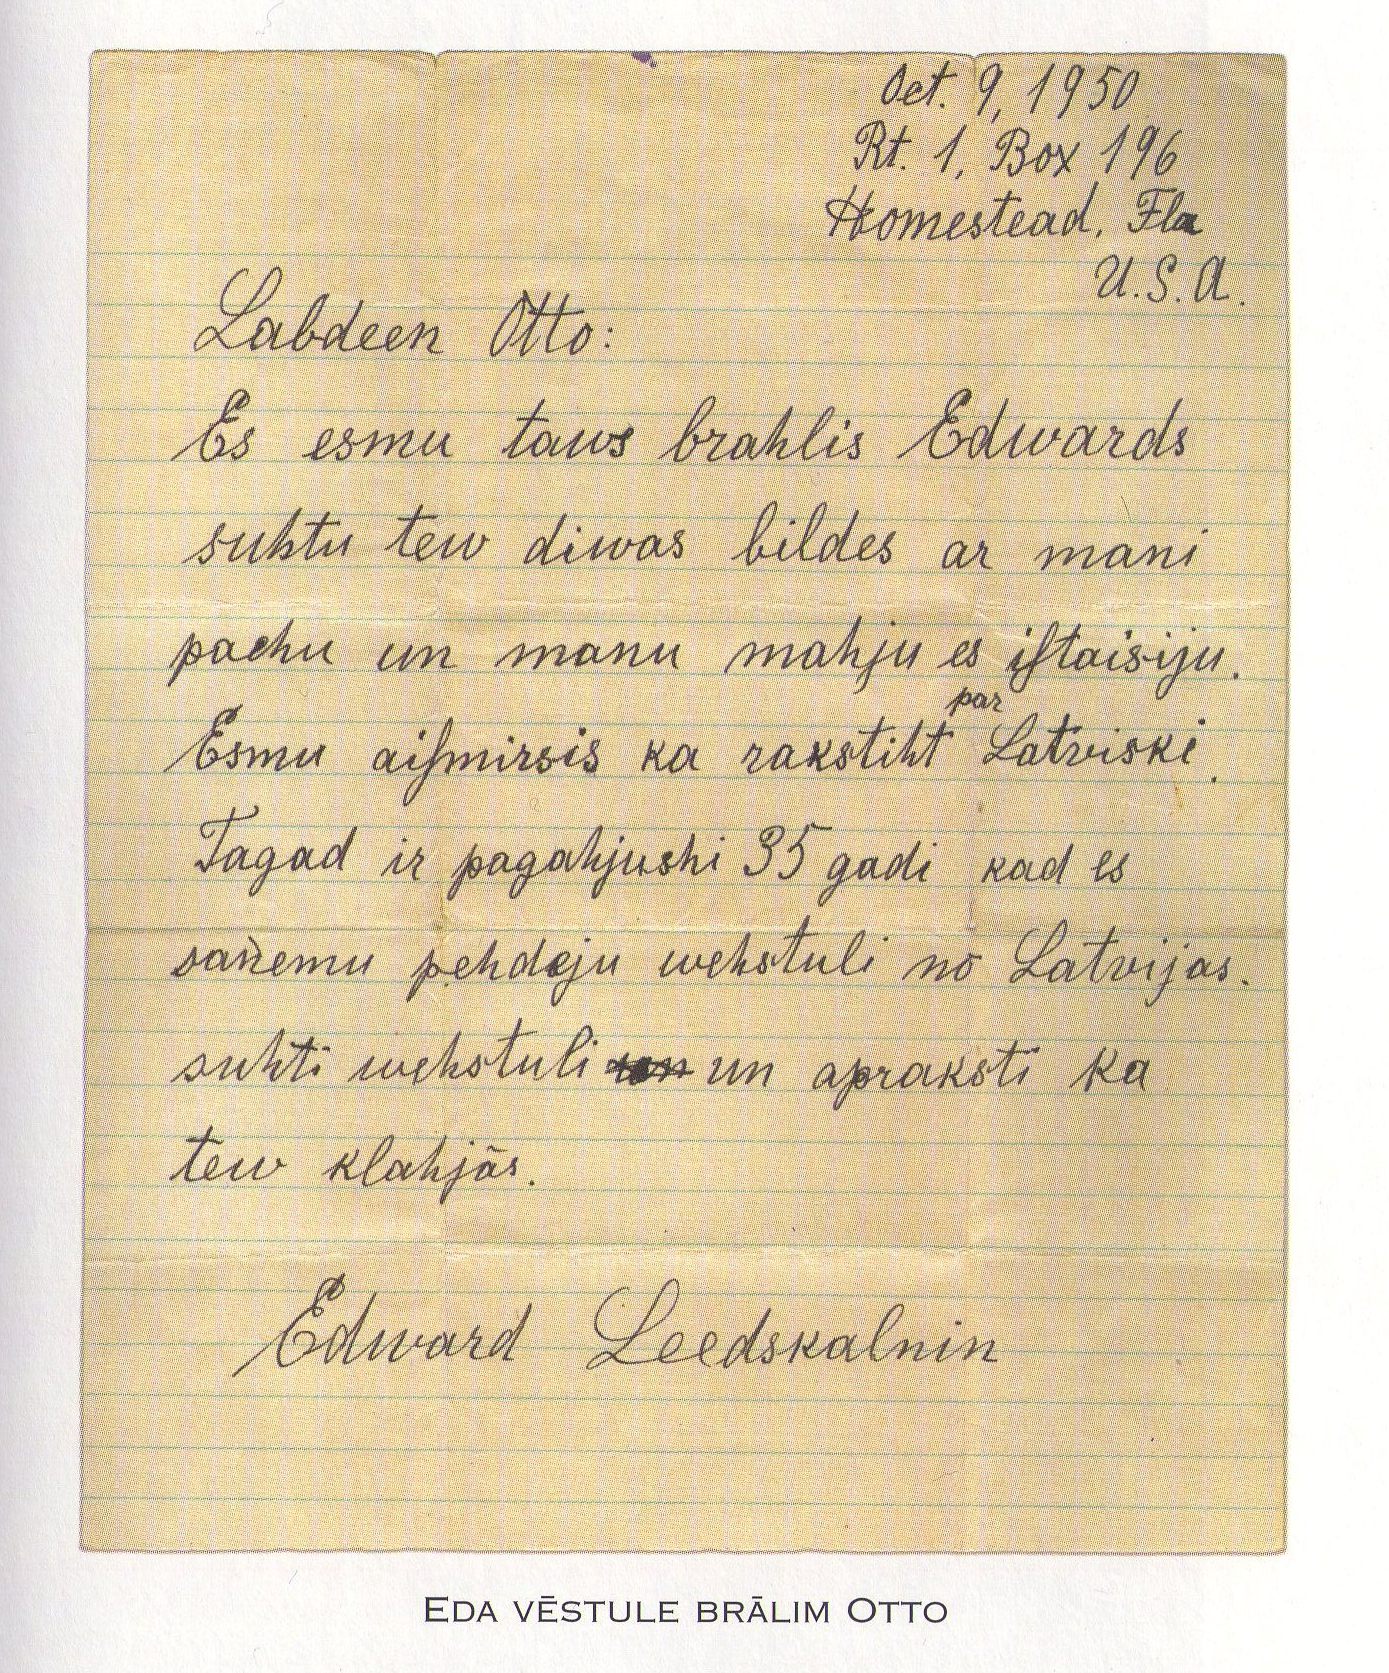 Oct. 9, 1950
Rt. 1, Box 196
Homestead, Fla
U.S.A.
Labdeen Otto:
Es esmu taws brahlis Edwards
suhtu tew diwas bildes ar mani
pachu un manu mahju es iſtaisiju.
par
Esmu aiſmirsis ka rakstiht Latviski.
Tagad ir pagahjushi 35 gadi kad es
sanemu pehdeju wehstuli no Latvijas.
suhti wehstuli un apraksti ka
tew klahjās.
Edward Leedskalnin
EDA VĒSTULE BRĀLIM OTTO